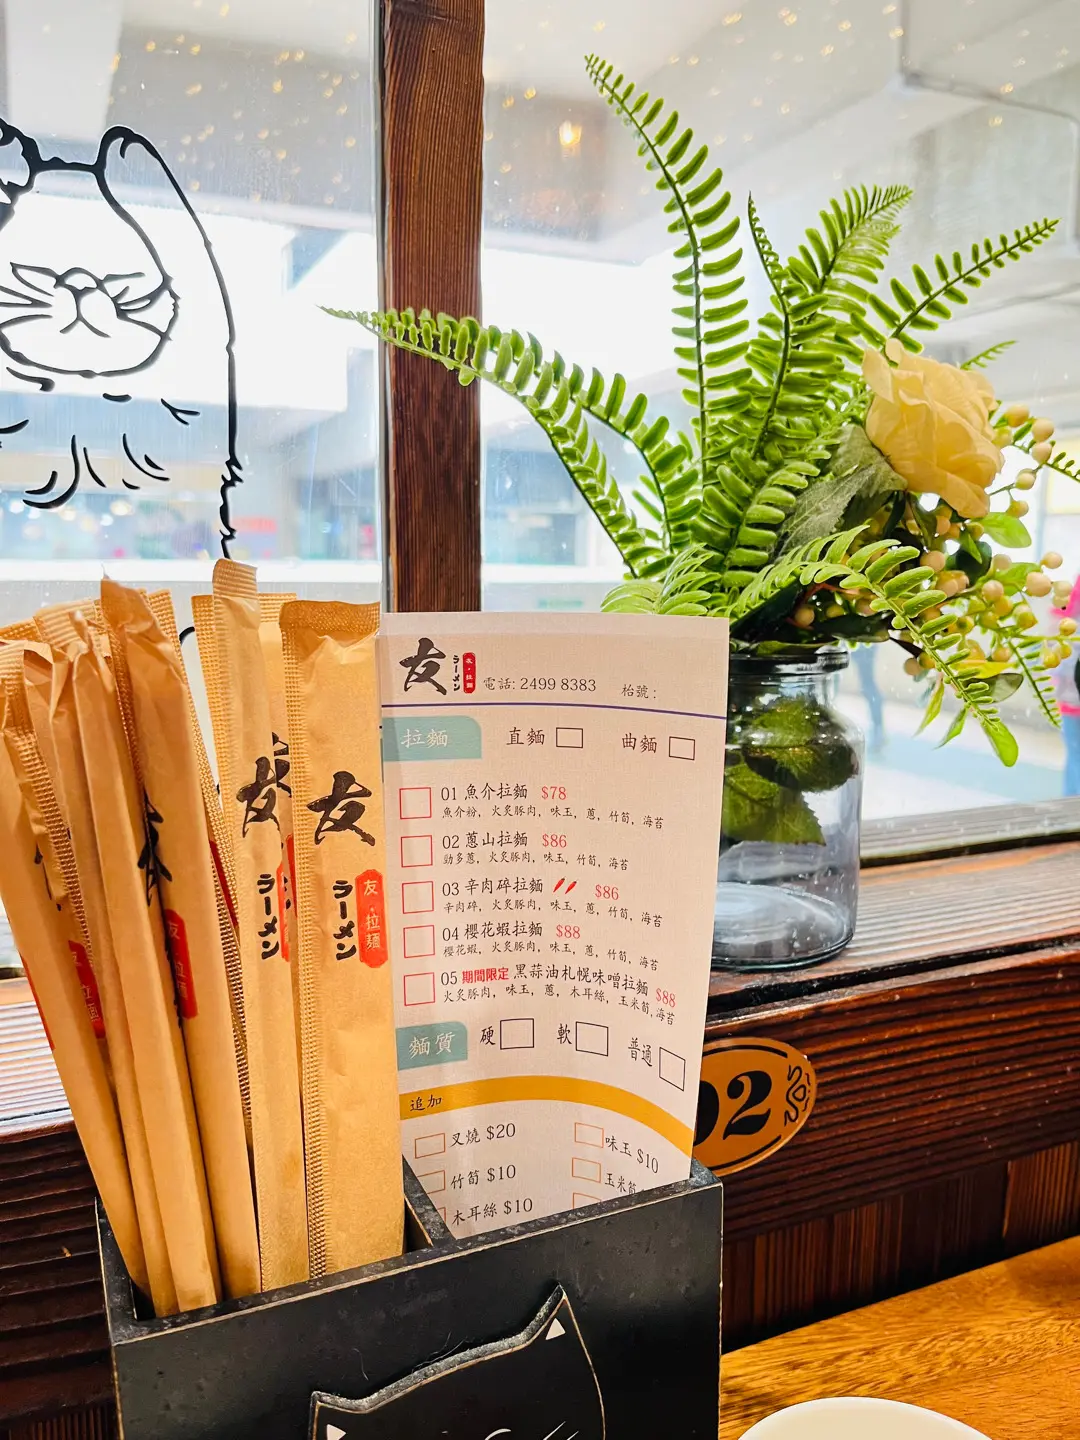 友 ラーメン 友・拉麵 電話: 2499 8383 枱號:
拉麵 直麵 曲麵
01 魚介拉麵 $78
魚介粉, 火炙豚肉, 味玉, 蔥, 竹筍, 海苔
02 蔥山拉麵 $86
勁多蔥, 火炙豚肉, 味玉, 竹筍, 海苔
03 辛肉碎拉麵 $86
辛肉碎, 火炙豚肉, 味玉, 蔥, 竹筍, 海苔
04 櫻花蝦拉麵 $88
櫻花蝦, 火炙豚肉, 味玉, 蔥, 竹筍, 海苔
05 期間限定 黑蒜油札幌味噌拉麵 $88
火炙豚肉, 味玉, 蔥, 木耳絲, 玉米筍, 海苔
麵質 硬 軟 普通
追加
叉燒 $20 味玉 $10
竹筍 $10 玉米筍
木耳絲 $10
友
ラーメン
友・拉麵
友
ラーメン
友
拉麵
02